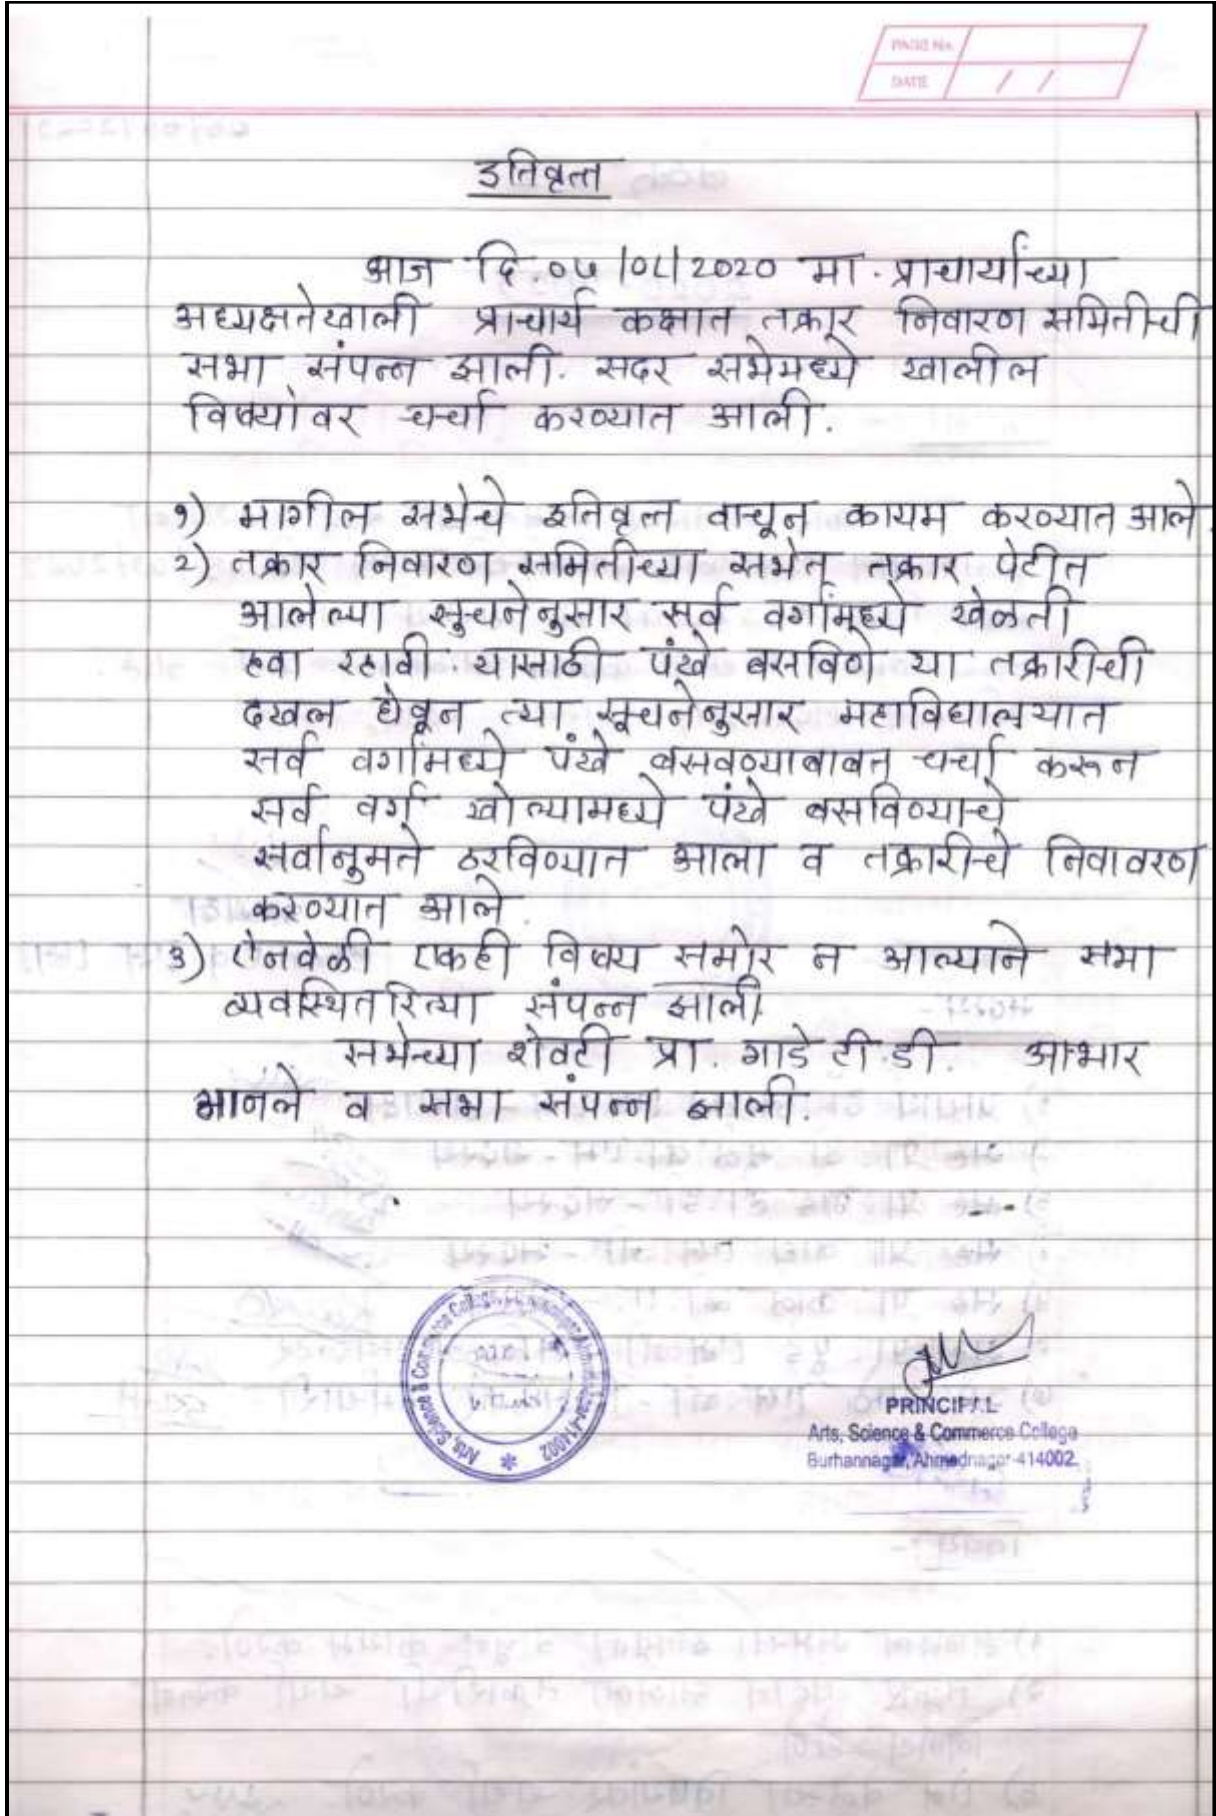 PAGE No.
DATE / /
इतिवृत्त
आज दि. ०५/०८/2020 मा. प्राचार्यांच्या
अध्यक्षतेखाली प्राचार्य कक्षात तक्रार निवारण समितीची
सभा संपन्न झाली. सदर सभेमध्ये खालील
विषयांवर चर्चा करण्यात आली.
१) मागील सभेचे इतिवृत्त वाचून कायम करण्यात आले.
२) तक्रार निवारण समितीच्या सभेत तक्रार पेटीत
आलेल्या सुचनेनुसार सर्व वर्गामध्ये खेळती
हवा रहावी यासाठी पंखे बसविणे या तक्रारीची
दखल घेवून त्या सूचनेनुसार महाविद्यालयात
सर्व वर्गामध्ये पंखे बसवण्याबाबत चर्चा करून
सर्व वर्ग खोल्यामध्ये पंखे बसविण्याचे
सर्वानुमते ठरविण्यात आला व तक्रारीचे निवावरण
करण्यात आले.
३) ऐनवेळी एकही विषय समोर न आल्याने सभा
व्यवस्थितरित्या संपन्न झाली.
सभेच्या शेवटी प्रा. गाडे टी.डी. आभार
मानले व सभा संपन्न झाली.
Arts, Science & Commerce College, Burhannagar, Ahmednagar-414002
PRINCIPAL
Arts, Science & Commerce College
Burhannagar, Ahmednagar-414002.